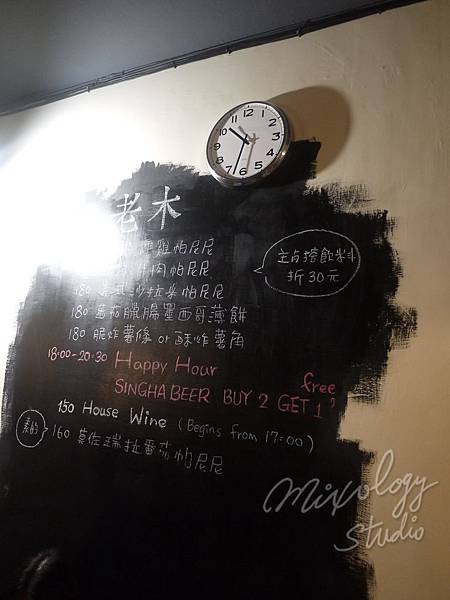 12
1
2
3
4
5
6
7
8
9
10
11
老木
雞帕尼尼
肉帕尼尼
180 沙拉米帕尼尼
180 蕃茄臘腸墨西哥薄餅
180 脆炸薯條 or 酥炸薯角
主占搭飲料
折30元
18:00-20:30 Happy Hour
SINGHA BEER BUY 2 GET 1 free
150 House Wine (Begins from 17:00)
素的
160 莫佐瑞拉番茄帕尼尼
Mixology
Studio